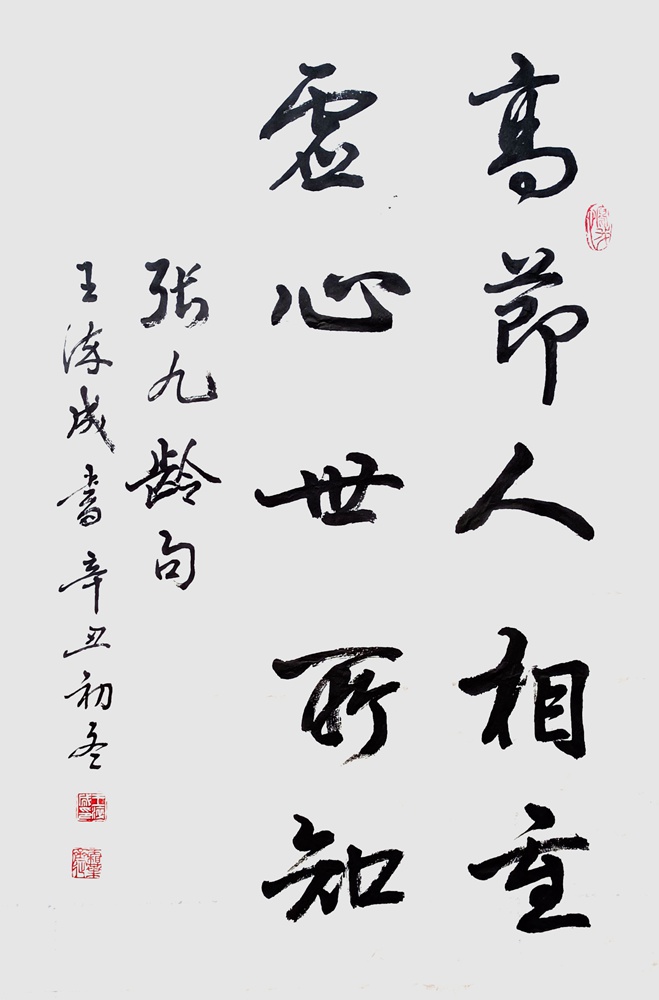 高節人相重
虛心世所知
張九齡句
王海成書辛丑初冬